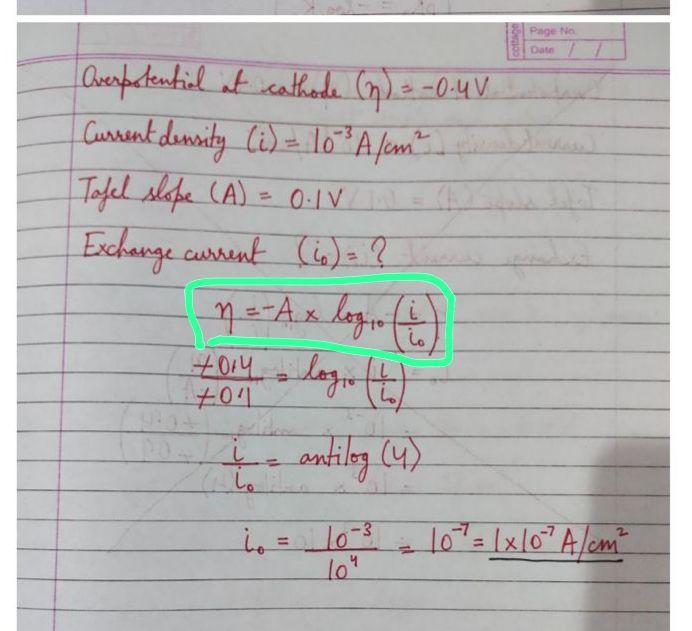 cottage
Page No.
Date / /
Overpotential at cathode (η) = -0.4 V
Current density (i) = 10⁻³ A/cm²
Tafel slope (A) = 0.1 V
Exchange current (i₀) = ?
η = -A × log₁₀ (i/i₀)
-0.4/-0.1 = log₁₀ (i/i₀)
i/i₀ = antilog (4)
i₀ = 10⁻³/10⁴ = 10⁻⁷ = 1×10⁻⁷ A/cm²